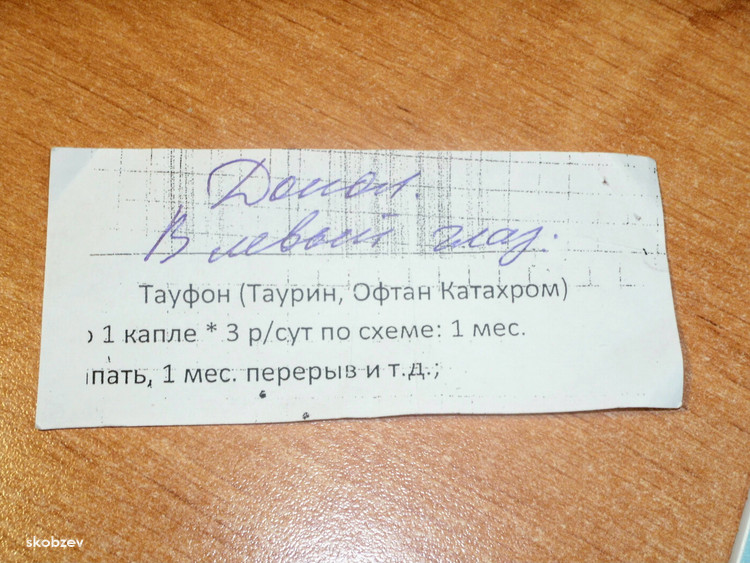 Допол.
В левый глаз.
Тауфон (Таурин, Офтан Катахром)
о 1 капле * 3 р/сут по схеме: 1 мес.
пать, 1 мес. перерыв и т.д.;
skobzev